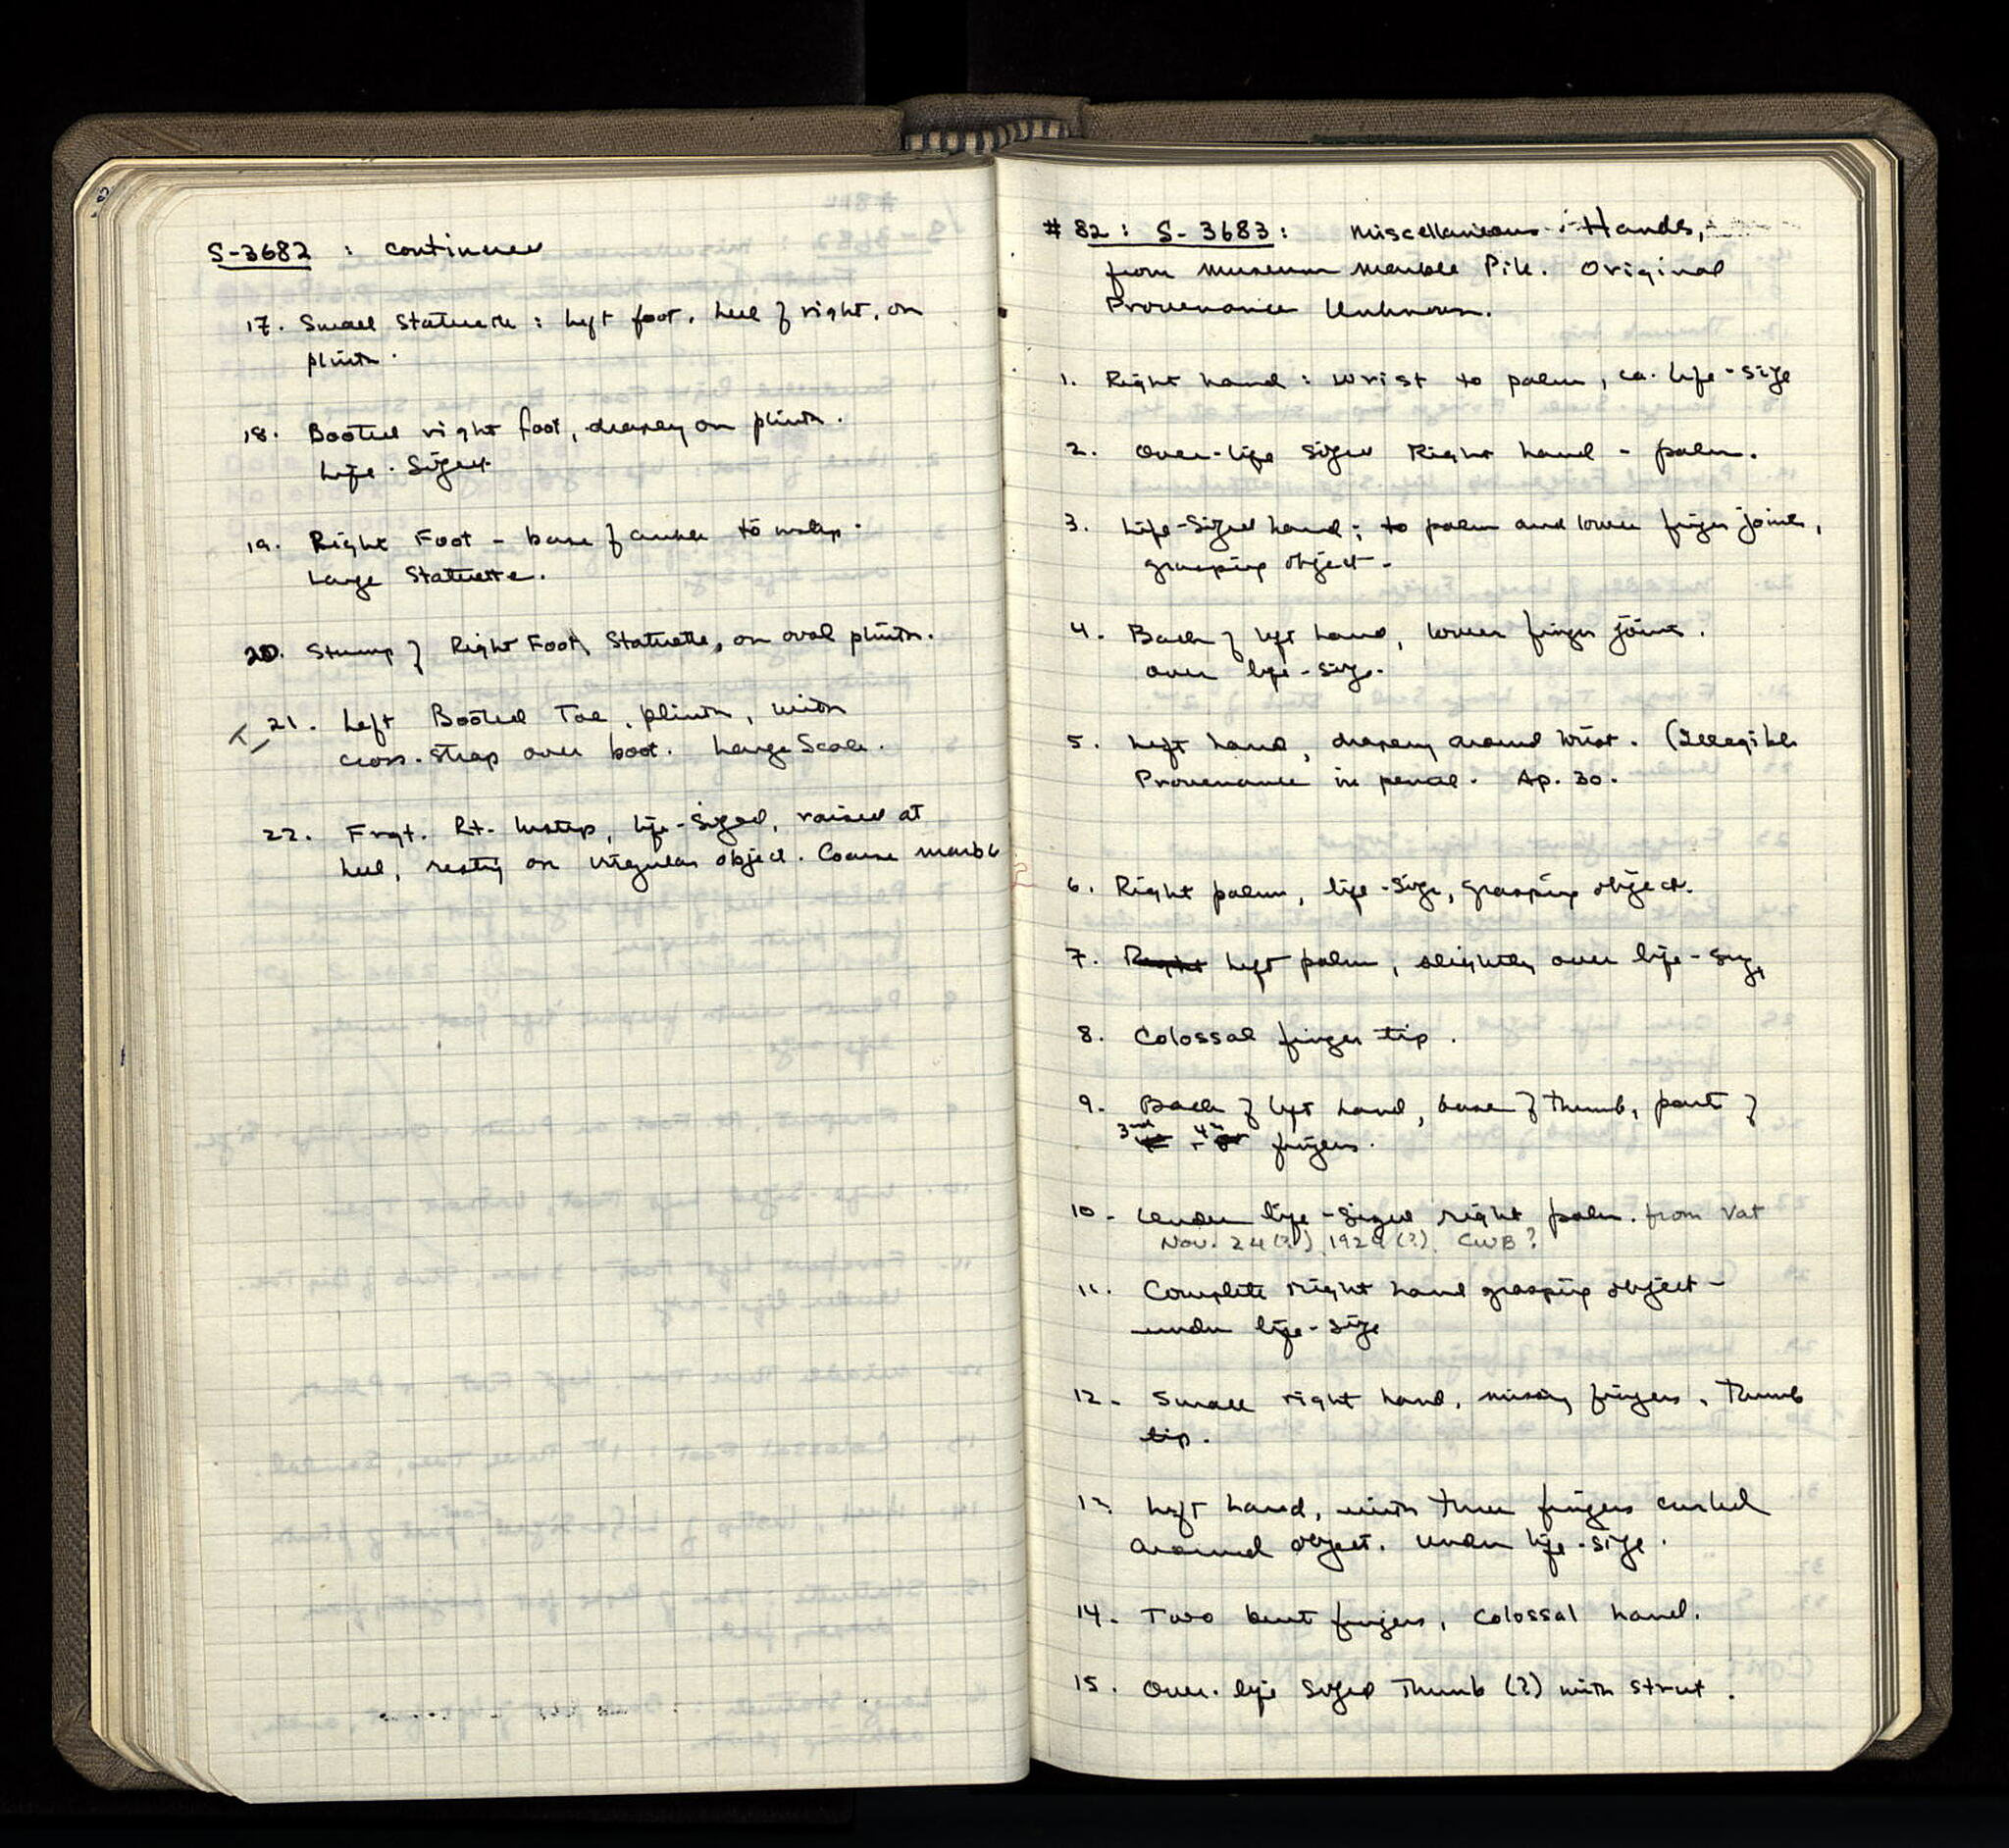 S-3682 : continued
17. Small Statuette : Left foot, heel of right, on
plinth.
18. Booted right foot, drapery on plinth.
Life-Sized.
19. Right Foot - base of ankle to instep.
Large Statuette.
20. Stump of Right Foot, Statuette, on oval plinth.
21. Left Booted Toe, plinth, with
cross-strap over boot. Large Scale.
22. Frgt. Rt. Instep, life-sized, raised at
heel, resting on irregular object. Coarse marble
# 82 : S-3683 : Miscellaneous Hands,
from Museum Marble Pile. Original
Provenance Unknown.
1. Right hand : wrist to palm, ca. life-size
2. Over-life sized Right hand - palm.
3. Life-Sized hand; to palm and lower finger joints,
grasping object-
4. Back of left hand, lower finger joints.
over life-size.
5. Left hand, drapery around wrist. (Illegible
Provenance in pencil. Ap. 30.
6. Right palm, life-size, grasping object.
7. Right Left palm, slightly over life-size,
8. Colossal finger tip.
9. Back of left hand, base of thumb, part of
3rd + 4th fingers.
10- Under life-sized right palm. from Vat
Nov. 24(?) 1929(?) CWB?
11. Complete right hand grasping object -
under life-size
12- Small right hand, missing fingers, Thumb
tip.
13 Left hand, with three fingers curled
around object. Under life-size.
14- Two bent fingers, colossal hand.
15. Over-life sized Thumb (?) with strut.